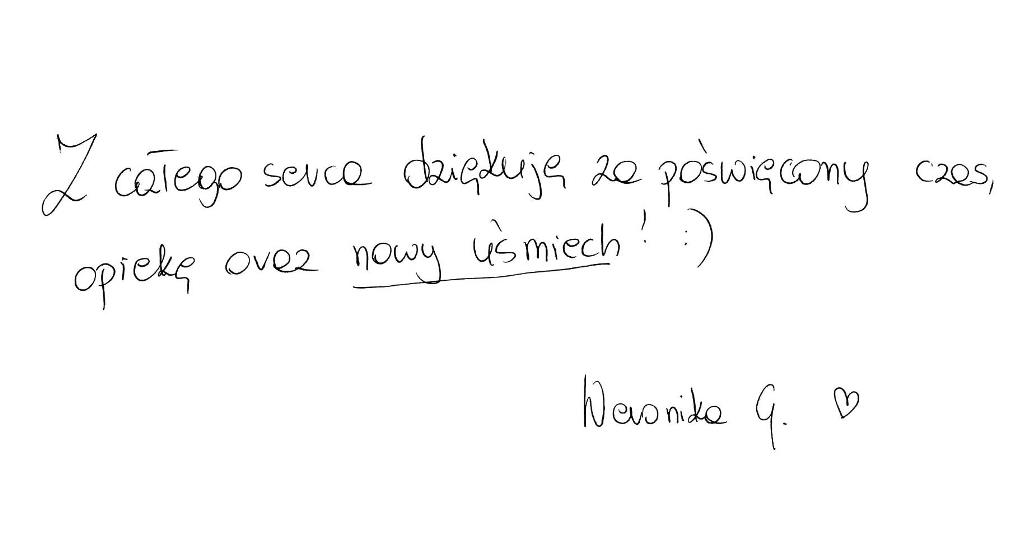 Z całego serca dziękuję za poświęcony czas,
opiekę oraz nowy uśmiech! :)
Weronika G. ♡